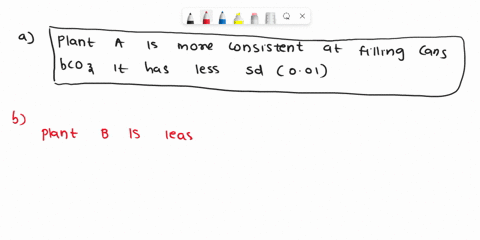 a) Plant A is more consistent at filling cans
bcoz it has less sd (0.01)
b)
plant B is leas